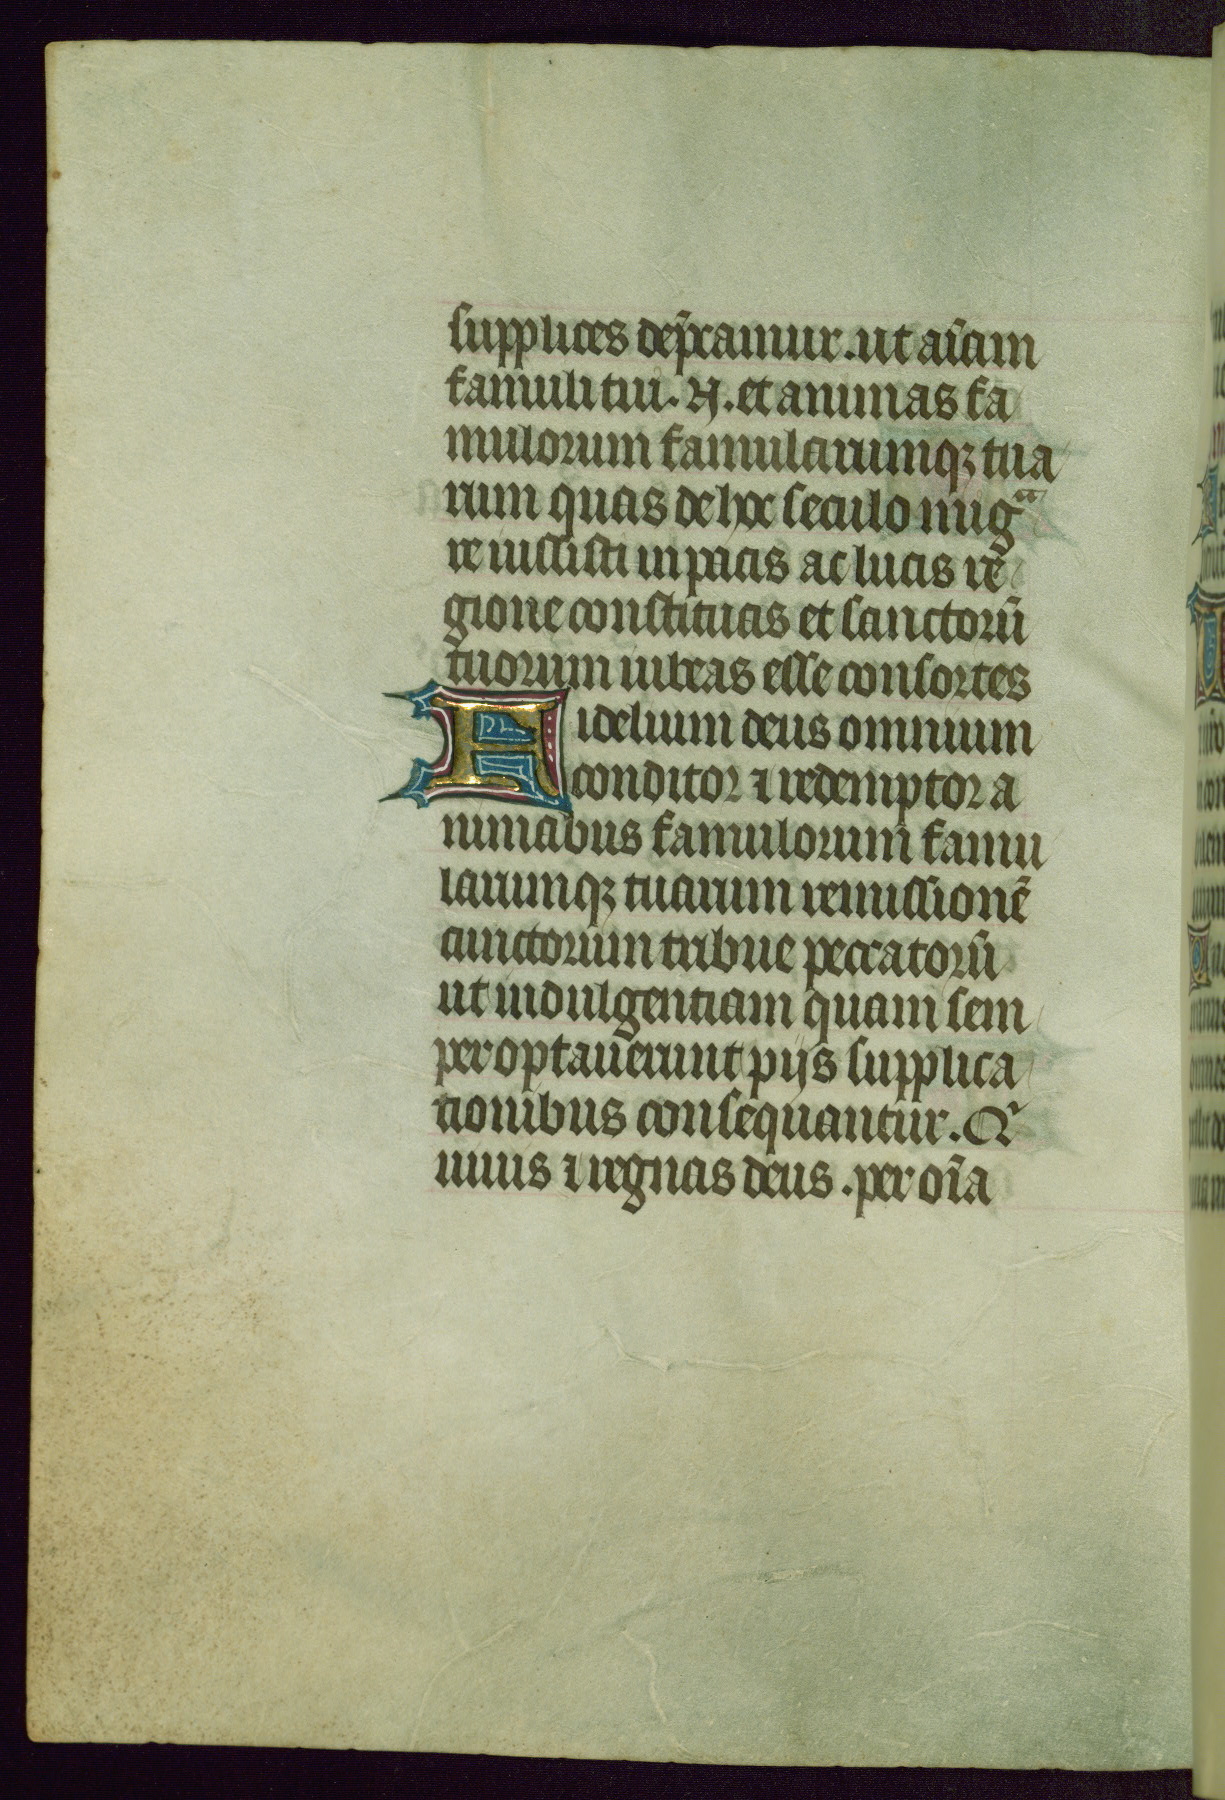 supplices dep̄camur. ut aīam
famuli tui. N. et animas fa
mulorum famularumqꝫ tua
rum quas de hoc seculo migᵃ
re iussisti in pacis ac lucis re
gione constituas et sanctorū
tuorum iubeas esse consortes
Fidelium deus omnium
conditor ⁊ redemptor a
nimabus famulorum famu
larumqꝫ tuarum remissionē
cunctorum tribue peccatorū
ut indulgentiam quam sem
per optauerunt pijs supplica
tionibus consequantur. Qⁱ
uiuis ⁊ regnas deus. per oīa